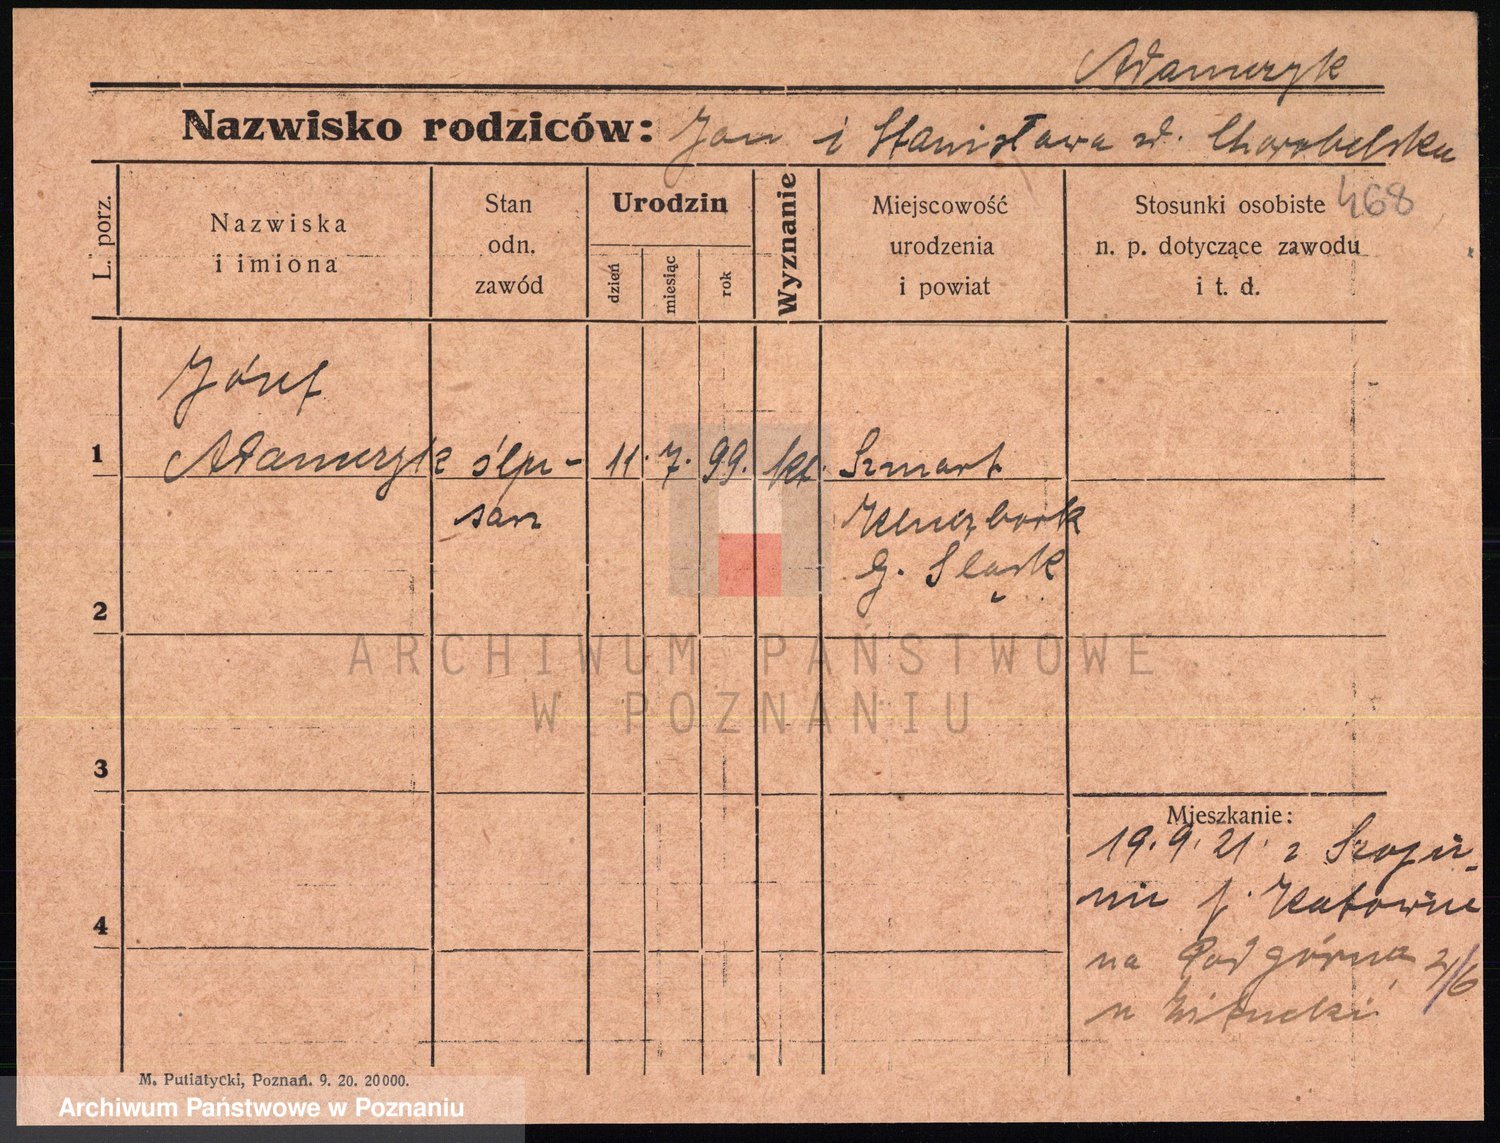 Adamczyk
Nazwisko rodziców: Jan i Stanisława d. Chorobelska
468
L. porz.
Nazwiska
i imiona
Stan
odn.
zawód
Urodzin
dzień
miesiąc
rok
Wyznanie
Miejscowość
urodzenia
i powiat
Stosunki osobiste
n. p. dotyczące zawodu
i t. d.
Józef
1 Adamczyk ślu-
sarz
11. 7. 99. kt. Szmart
Kluczbork
G. Śląsk
2
3
4
Mieszkanie:
19.9.21. z Szopie-
nic p. Katowice
na Podgórna
u
ARCHIWUM PAŃSTWOWE
W POZNANIU
M. Putiatycki, Poznań. 9. 20. 20000.
Archiwum Państwowe w Poznaniu